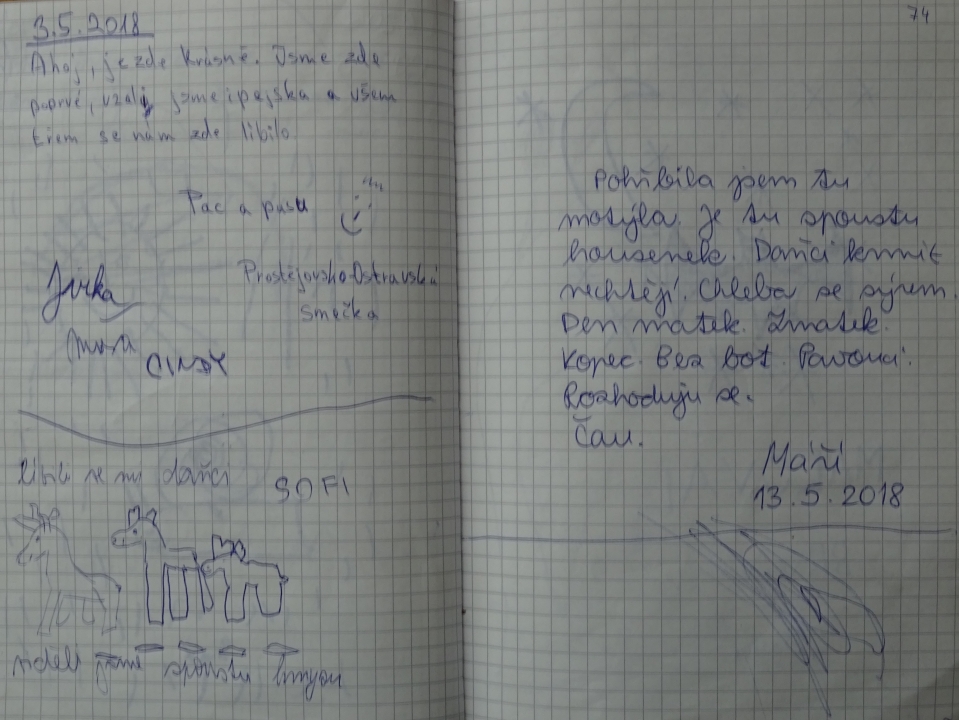 3.5.2018
Ahoj, je zde krásně. Jsme zde
poprvé, vzali jsme i pejska a všem
třem se nám zde líbilo
Pac a pusu
Prostějovsko-Ostravská
smečka
Jirka
CINDY
líbili se my daňci
SOFI
viděli jsme spoustu hmyzu
74
Pohřbila jsem tu
motýla. Je tu spoustu
housenek. Daňci krmit
nechtějí. Chleba se sýrem.
Den matek. Zmatek.
Kopec. Bez bot. Pavouci.
Rozhoduju se.
Čau.
Máří
13.5.2018